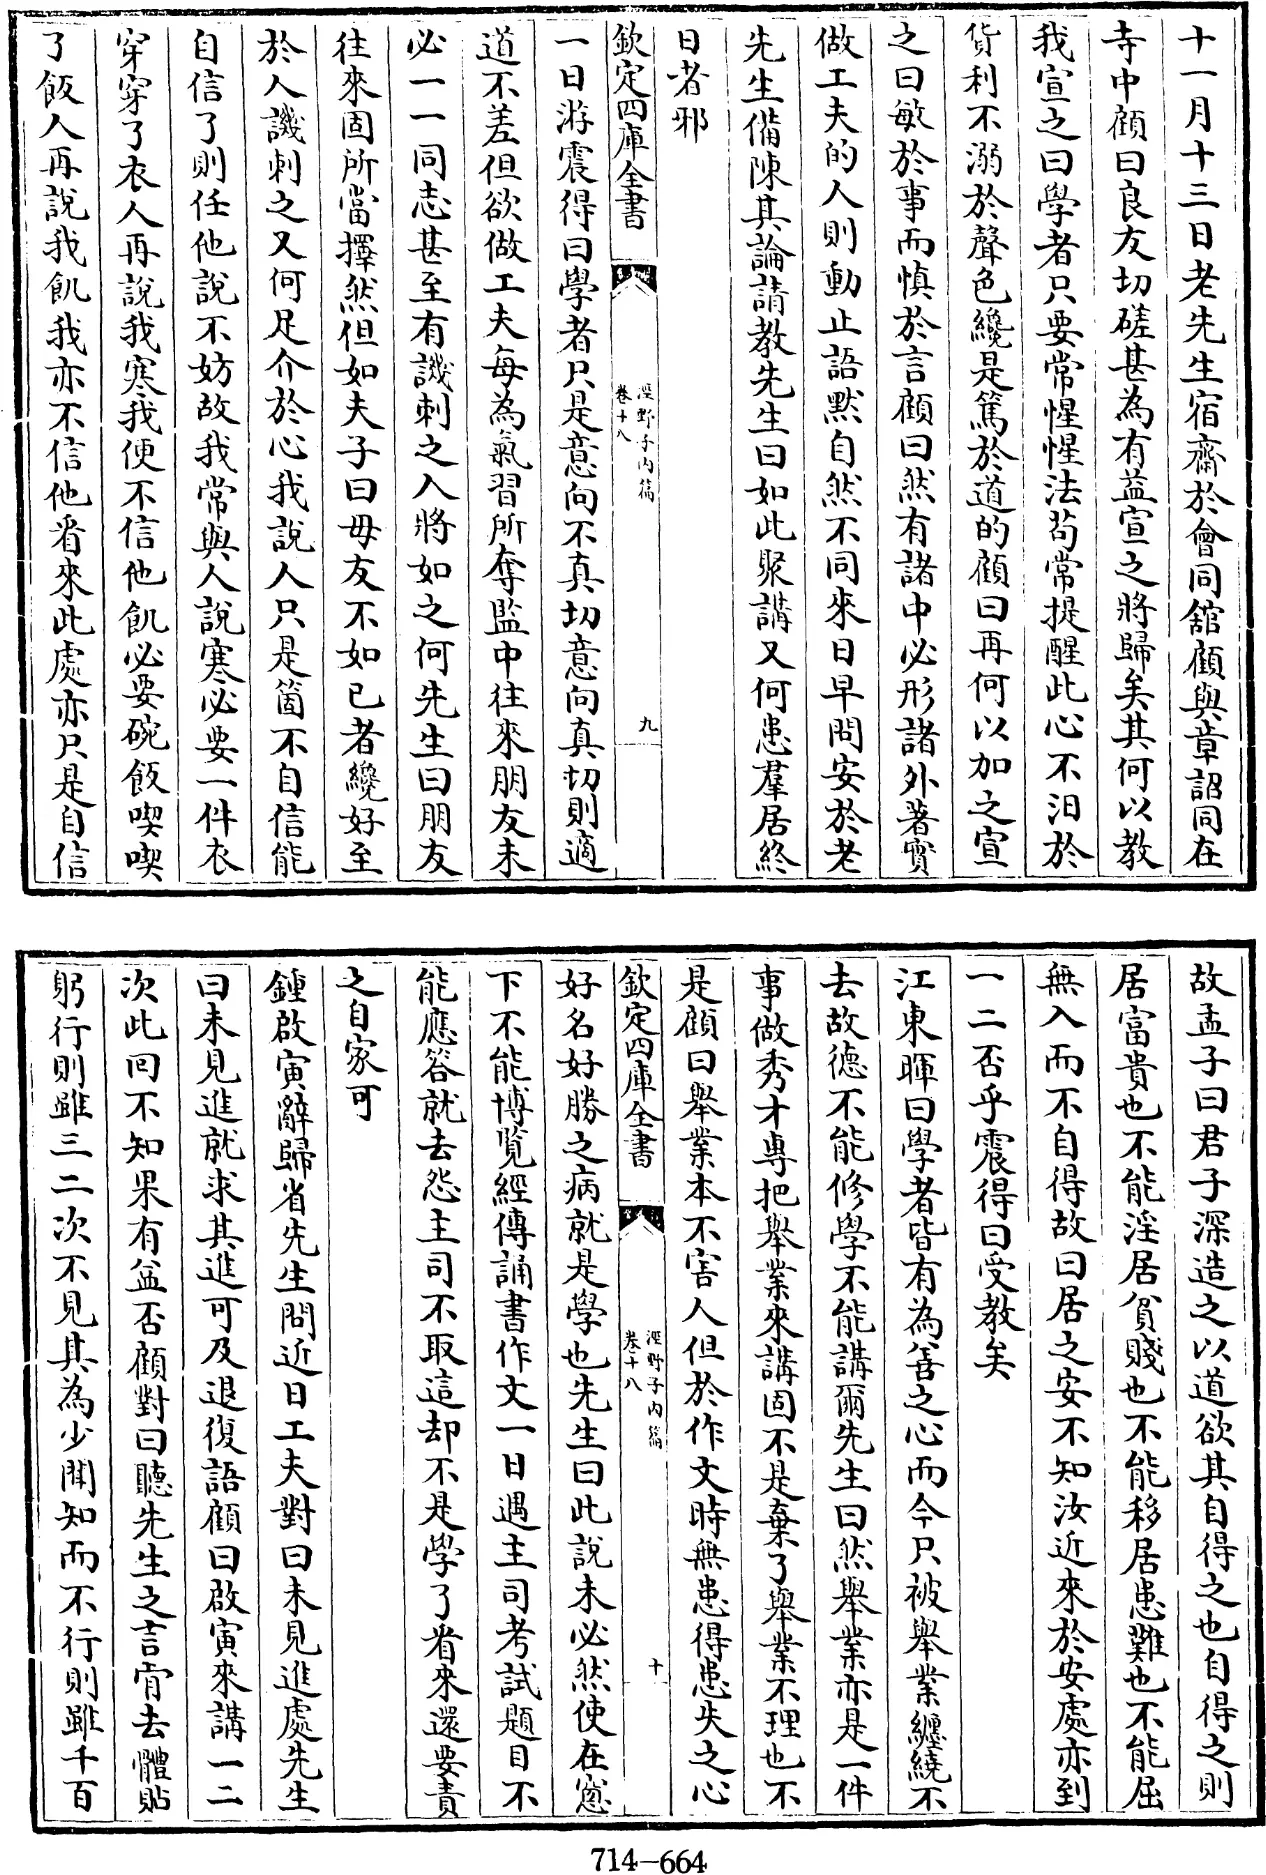 十一月十三日老先生宿齋於會同館顧與章詔同在
寺中顧曰良友切磋甚為有益宣之將歸矣其何以教
我宣之曰學者只要常惺惺法茍常提醒此心不汩於
貨利不溺於聲色纔是篤於道的顧曰再何以加之宣
之曰敏於事而慎於言顧曰然有諸中必形諸外著實
做工夫的人則動止語黙自然不同來日早問安於老
先生備陳其論請教先生曰如此聚講又何患羣居終
日者邪
欽定四庫全書
涇野子内篇
卷十八
九
一日游震得曰學者只是意向不真切意向真切則適
道不差但欲做工夫每為氣習所奪監中往來朋友未
必一一同志甚至有譏刺之人將如之何先生曰朋友
往來固所當擇然但如夫子曰毋友不如己者纔好至
於人譏刺之又何足介於心我說人只是箇不自信能
自信了則任他說不妨故我常與人說寒必要一件衣
穿穿了衣人再說我寒我便不信他飢必要碗飯喫喫
了飯人再說我飢我亦不信他看來此處亦只是自信
故孟子曰君子深造之以道欲其自得之也自得之則
居富貴也不能淫居貧賤也不能移居患難也不能屈
無入而不自得故曰居之安不知汝近來於安處亦到
一二否乎震得曰受教矣
江東暉曰學者皆有為善之心而今只被舉業纏繞不
去故德不能修學不能講爾先生曰然舉業亦是一件
事做秀才專把舉業來講固不是棄了舉業不理也不
是顧曰舉業本不害人但於作文時無患得患失之心
欽定四庫全書
涇野子内篇
卷十八
十
好名好勝之病就是學也先生曰此說未必然使在窻
下不能博覽經傳誦書作文一日遇主司考試題目不
能應答就去怨主司不取這却不是學了看來還要責
之自家可
鍾啟寅辭歸省先生問近日工夫對曰未見進處先生
曰未見進就求其進可及退復語顧曰啟寅來講一二
次此回不知果有益否顧對曰聽先生之言肯去體貼
躬行則雖三二次不見其為少聞知而不行則雖千百
714-664